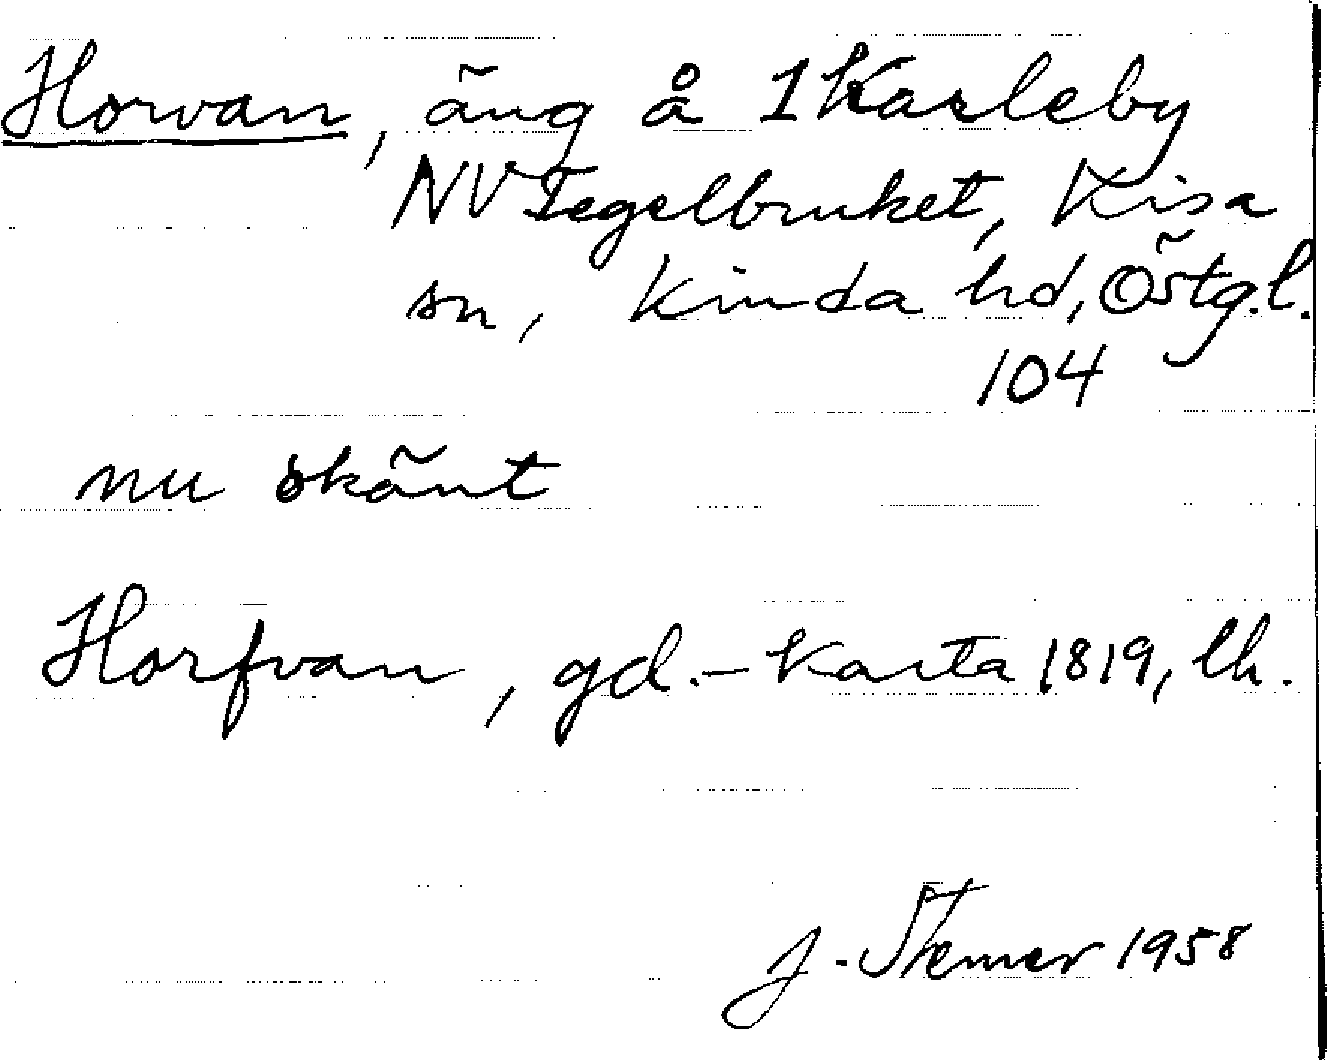 Horvan, äng å 1 Karleby
NV Tegelbruket, Kisa
sn, Kinda hd, Östg.l.
104
nu okänt
Horfvan, gd.-karta 1819, lh.
J. Stemer 1958